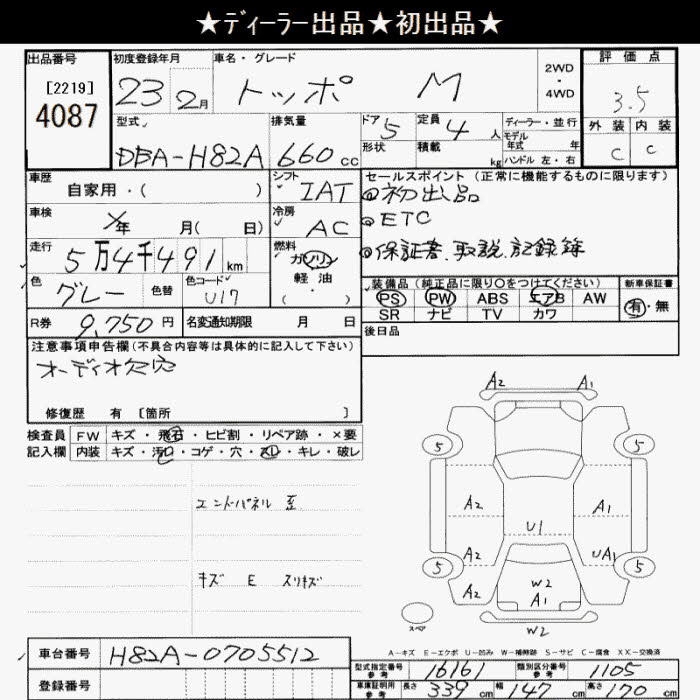 ★ディーラー出品★初出品★
出品番号
[2219]
4087
初度登録年月
23 2月
車名・グレード
トッポ M
2WD・4WD
評価点
3.5
外装 内装
C C
型式
DBA-H82A
排気量
660 cc
ドア 5
形状
定員 4 人
積載 kg
ディーラー・並行
モデル年式 年
ハンドル 左・右
車歴
自家用・( )
シフト
IAT
セールスポイント (正常に機能するものに限ります)
◎初出品
◎ETC
◎保証書、取説、記録簿
車検
年 月( 日)
冷房
AC
走行
5万4千491km
燃料
ガソリン
軽油
( ・ )
色
グレー
色替
色コード
U17
装備品 (純正品に限り○をつけてください)
PS PW ABS エアB AW
SR ナビ TV カワ
新車保証書
有・無
R券 9,750円
名変通知期限 月 日
後日品
注意事項申告欄(不具合内容等は具体的に記入して下さい)
オーディオ欠穴
修復歴 有 [箇所 ]
検査員記入欄
FW キズ・飛石・ヒビ割・リペア跡・×要
内装 キズ・汚レ・コゲ・穴・スレ・キレ・破レ
エンドパネル 歪
キズ E スリキズ
A2 A1
5 5
A2 A1
U1
A2 UA1
5 5
A2 W2
A1
スペア
W2
A-キズ E-エクボ U-凹み W-補修跡 S-サビ C-腐食 XX-交換済
車台番号 H82A-0705512
登録番号
型式指定番号 参考 16161
類別区分番号 参考 1105
車庫証明用 参考 長さ 339cm 幅 147cm 高さ 170cm